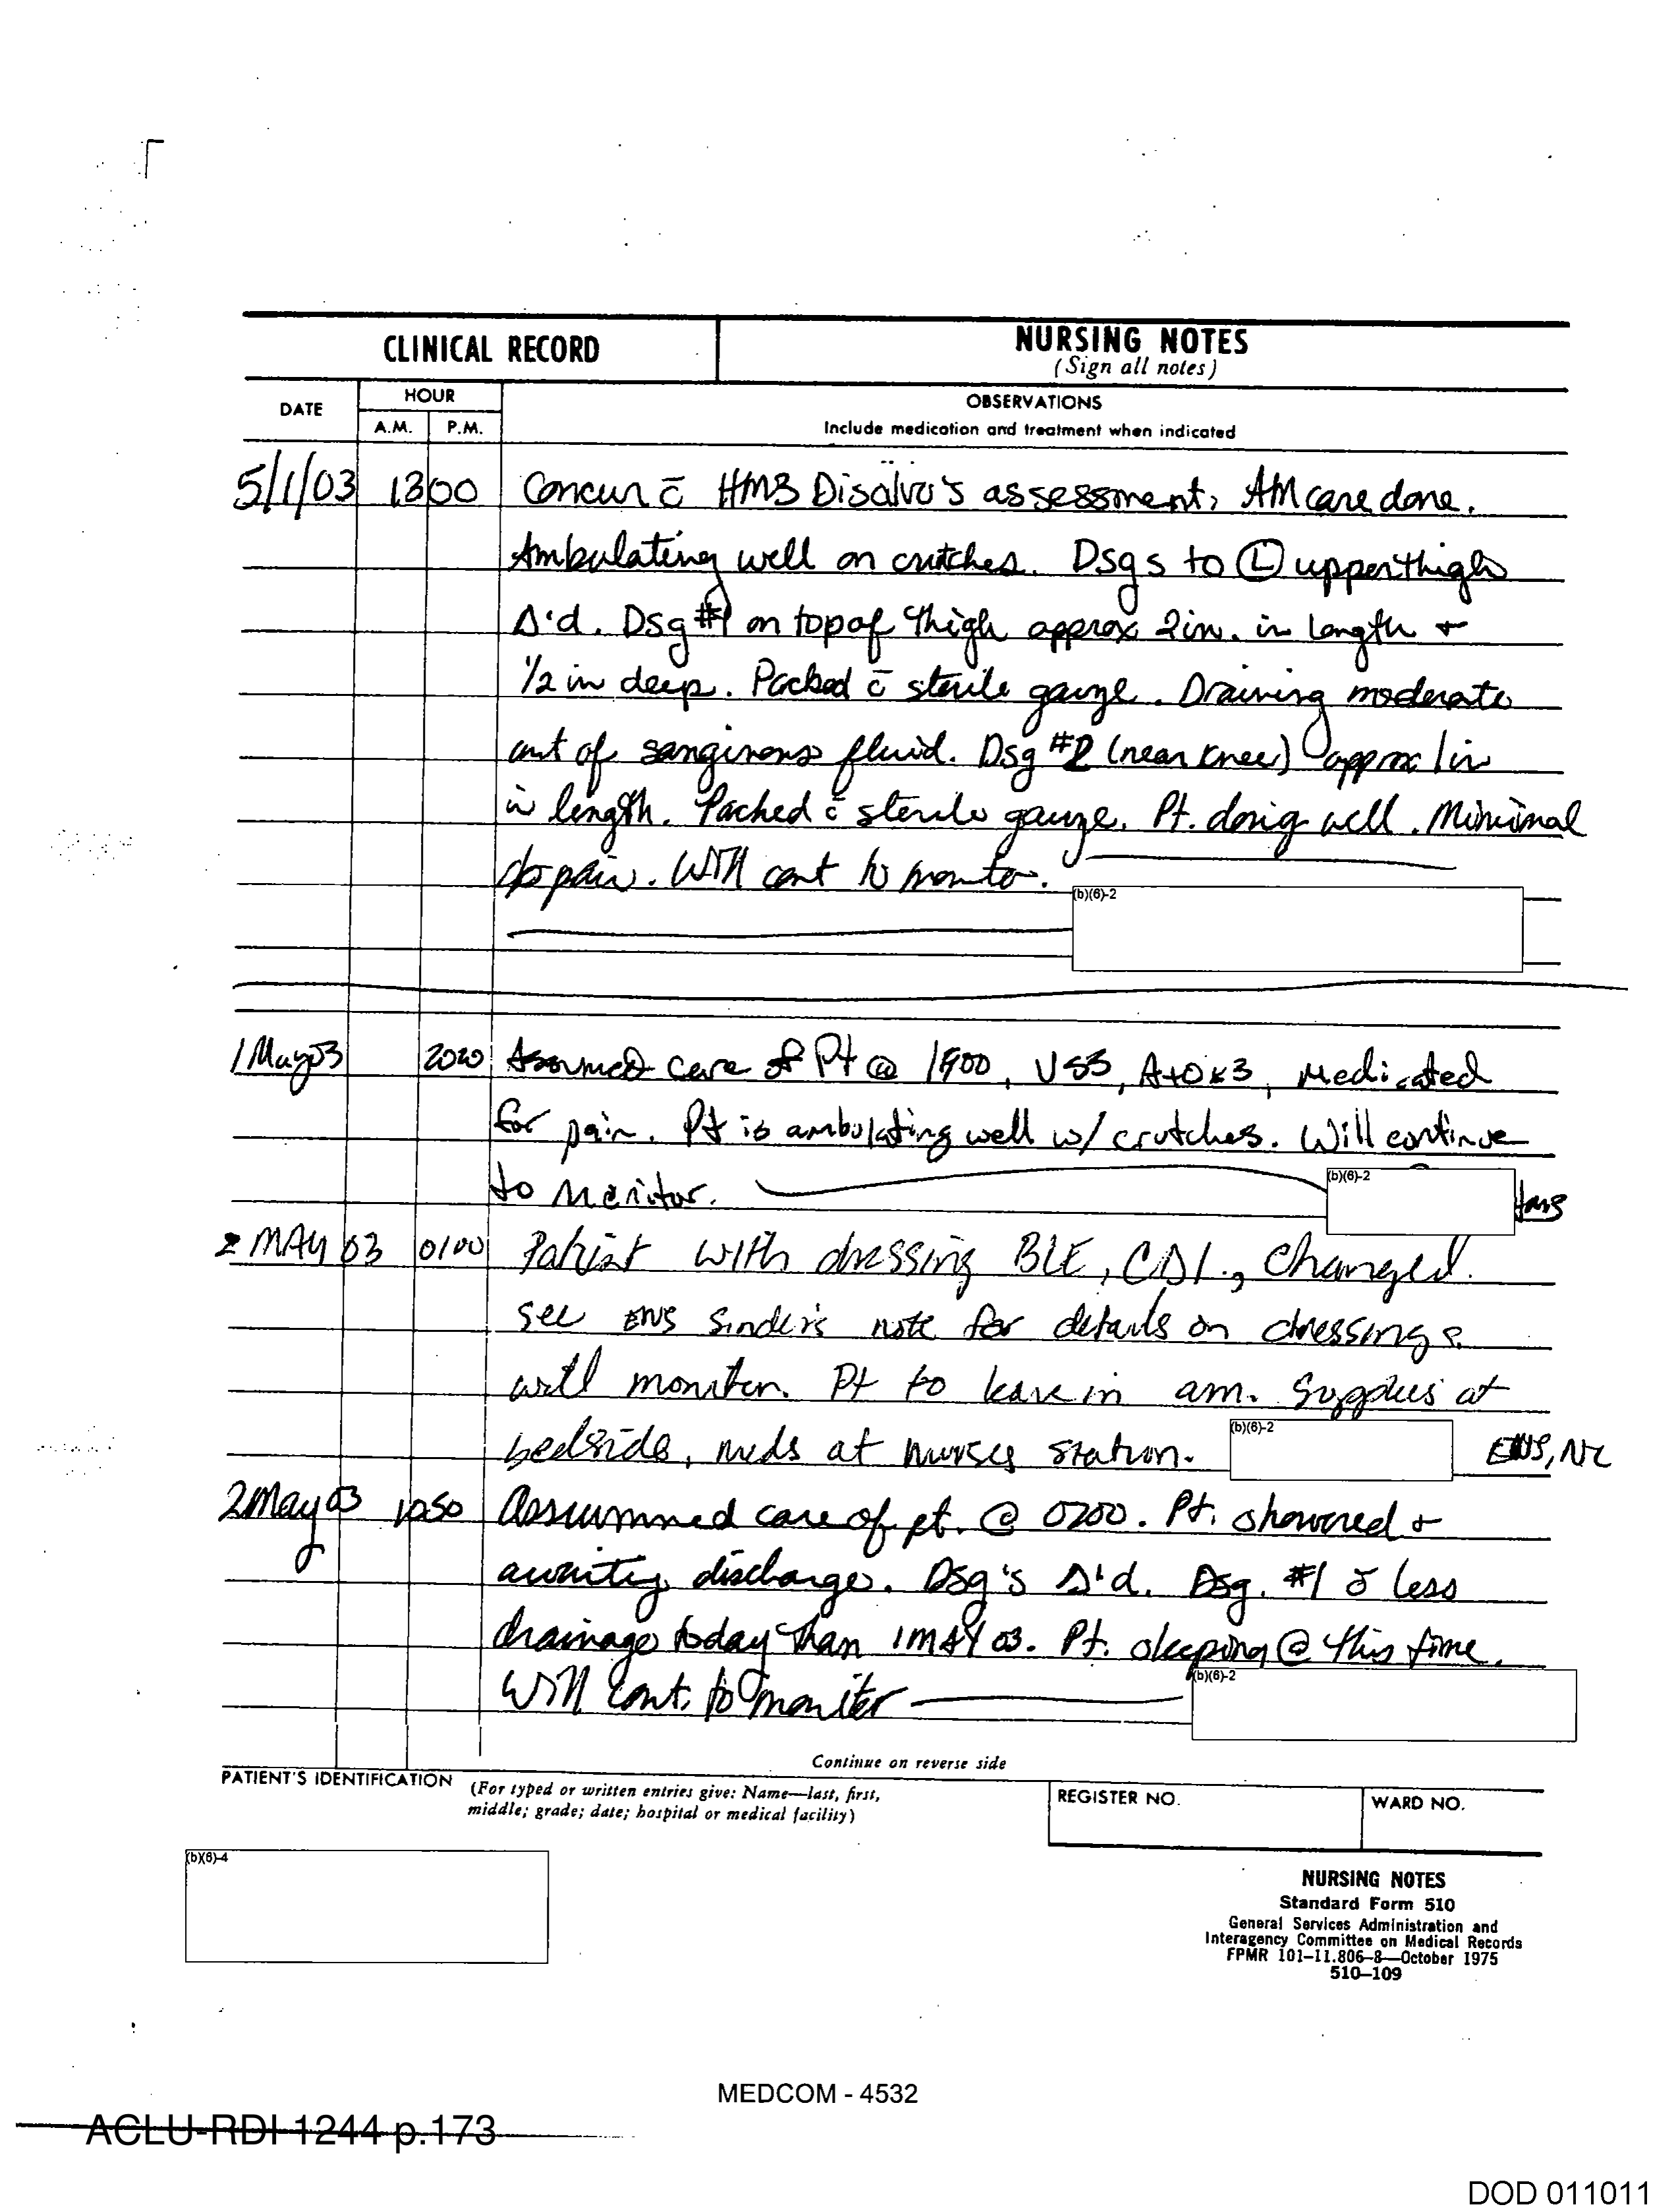 CLINICAL RECORD
NURSING NOTES
(Sign all notes)
DATE
HOUR
A.M.
P.M.
OBSERVATIONS
Include medication and treatment when indicated
5/1/03 1300 Concur c̄ HM3 Disalvo's assessment, AM care done.
Ambulating well on crutches. Dsgs to Ⓛ upper thigh
Δ'd. Dsg #1 on top of thigh approx 2in. in length +
1/2 in deep. Packed c̄ sterile gauze. Draining moderate
amt of sanginous fluid. Dsg #2 (near knee) approx 1in
in length. Packed c̄ sterile gauze. Pt. doing well. Minimal
c/o pain. Will cont to monitor.
(b)(6)-2
1 May 03 2020 Assumed care of Pt @ 1900, VSS, A+Ox3, Medicated
for pain. Pt is ambulating well w/ crutches. Will continue
to monitor.
(b)(6)-2
2 MAY 03 0100 Patient with dressing BLE, CDI., changed.
see ENS Sinder's note for details on dressings.
will monitor. Pt to leave in am. Supplies at
bedside, meds at nurses station.
(b)(6)-2
ENS, NC
2 May 03 1050 Assummed care of pt. @ 0700. Pt. showered +
awaiting discharge. Dsg's Δ'd. Dsg. #1 c̄ less
drainage today than 1 MAY 03. Pt. sleeping @ this time.
Will cont. to moniter
(b)(6)-2
Continue on reverse side
PATIENT'S IDENTIFICATION
(For typed or written entries give: Name—last, first,
middle; grade; date; hospital or medical facility)
REGISTER NO.
WARD NO.
(b)(6)-4
NURSING NOTES
Standard Form 510
General Services Administration and
Interagency Committee on Medical Records
FPMR 101-11.806-8—October 1975
510-109
MEDCOM - 4532
ACLU-RDI 1244 p.173
DOD 011011